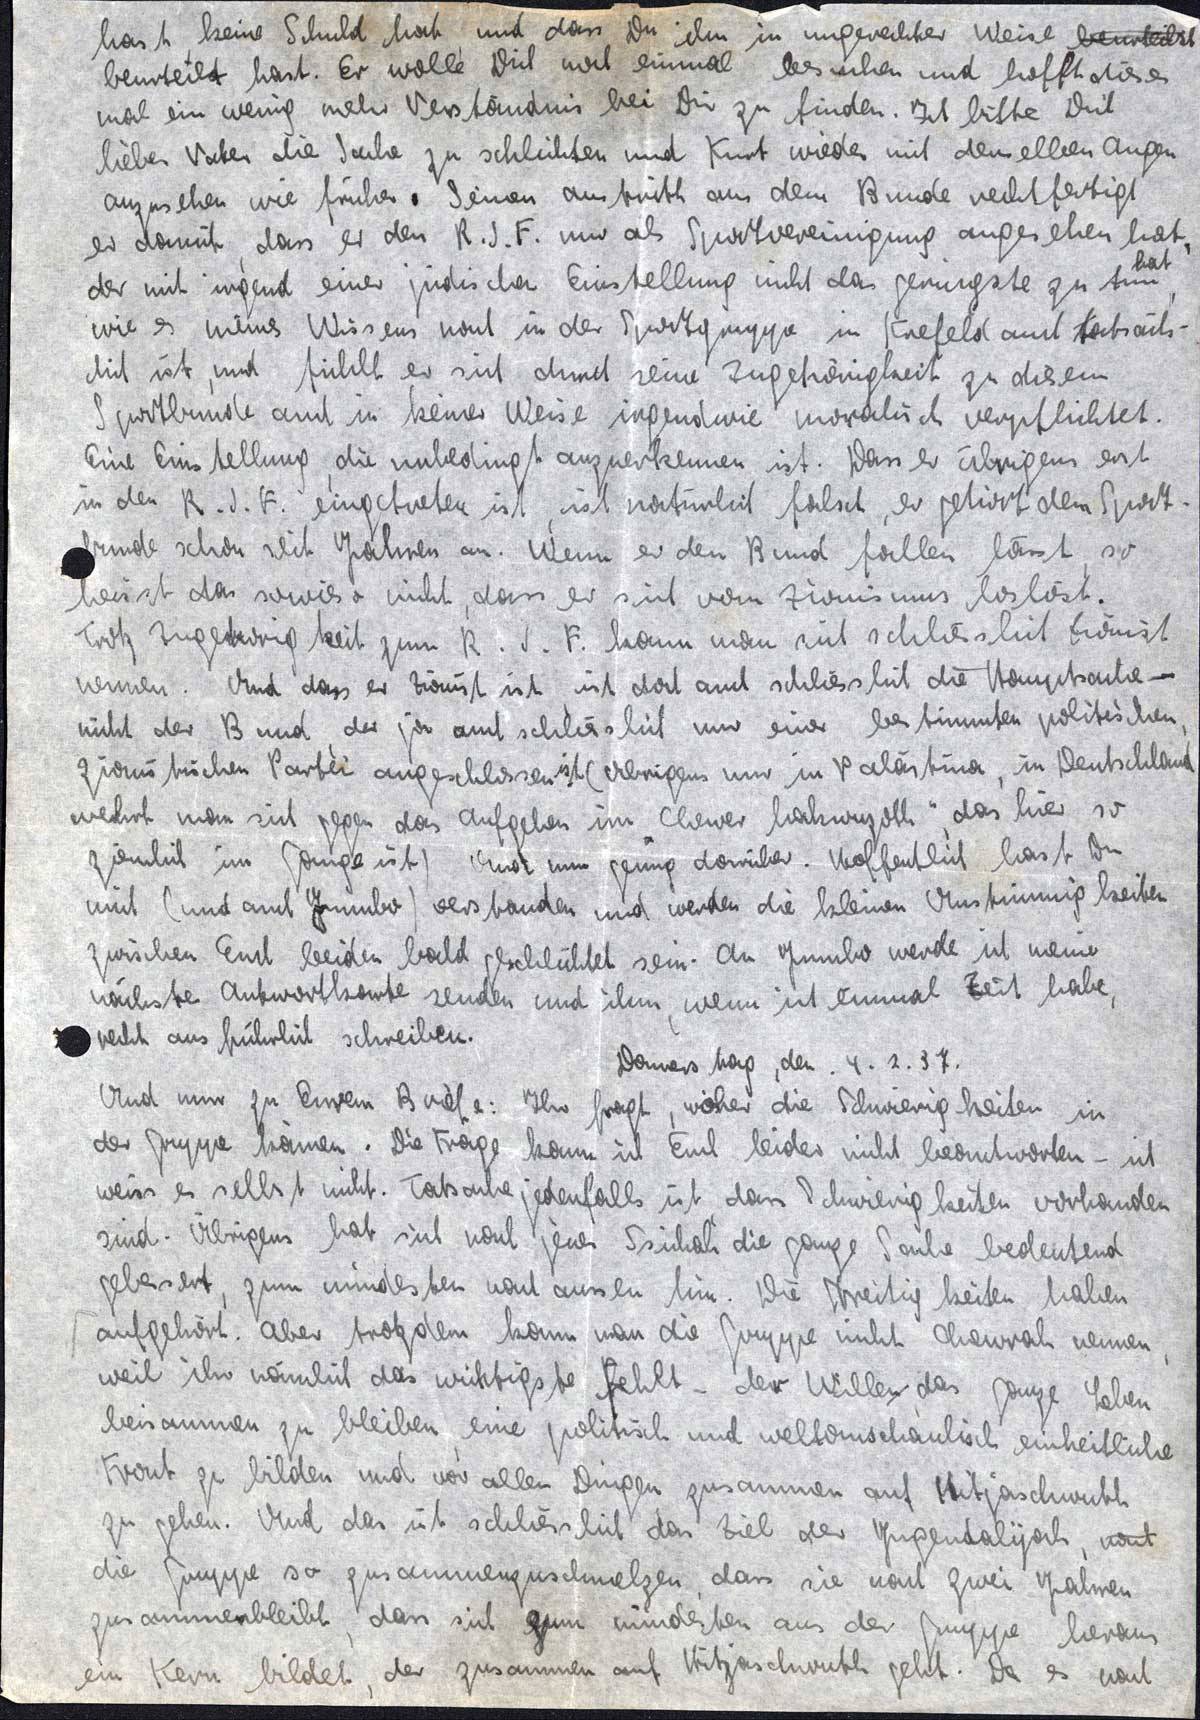 hast, keine Schuld hat und dass Du ihn in ungerechter Weise beurteilst
beurteilt hast. Er wolle Dich noch einmal besuchen und hofft dieses
mal ein wenig mehr Verständnis bei Dir zu finden. Ich bitte Dich
lieber Vater die Sache zu schlichten und Kurt wieder mit denselben Augen
anzusehen wie früher. Seinen austritt aus dem Bunde rechtfertigt
er damit, dass er den R.J.F. nur als Sportvereinigung angesehen hat,
der mit irgend einer jüdischen Einstellung nicht das geringste zu tun hat,
wie es meines Wissens nach in der Sportgruppe in Krefeld auch tatsäch-
lich ist, und fühlt er sich durch seine Zugehörigkeit zu diesem
Sportbunde auch in keiner Weise irgendwie moralisch verpflichtet.
Eine Einstellung, die unbedingt anzuerkennen ist. Dass er übrigens erst
in den R.J.F. eingetreten ist, ist natürlich falsch, er gehört dem Sport-
bunde schon seit Jahren an. Wenn er den Bund fallen lässt, so
heisst das sowieso nicht, dass er sich vom Zionismus loslöst.
Trotz Zugehörigkeit zum R.J.F. kann man sich schliesslich Zionist
nennen. Und dass er Zionist ist, ist doch auch schliesslich die Hauptsache —
nicht der Bund, der ja auch schliesslich nur einer bestimmten politischen,
zionistischen Partei angeschlossen ist (übrigens nur in Palästina, in Deutschland
wehrt man sich gegen das Aufgehen im "Chewer hakwuzoth", das hier so
ziemlich im Gange ist) Und nun genug darüber. Hoffentlich hast Du
mich (und auch Jumbo) verstanden und werden die kleinen Unstimmigkeiten
zwischen Euch beiden bald geschlichtet sein. An Jumbo werde ich meine
nächste Antwortkarte senden und ihm, wenn ich einmal Zeit habe,
recht ausführlich schreiben.
Donnerstag, den 4.2.37.
Und nun zu Eurem Briefe: Ihr fragt, woher die Schwierigkeiten in
der Gruppe kämen. Die Frage kann ich Euch leider nicht beantworten – ich
weiss es selbst nicht. Tatsache jedenfalls ist, dass Schwierigkeiten vorhanden
sind. Übrigens hat sich nach jener Ssichah die ganze Sache bedeutend
gebessert, zum mindesten nach aussen hin. Die Streitigkeiten haben
aufgehört. Aber trotzdem kann man die Gruppe nicht Chewrah nennen,
weil ihr nämlich das wichtigste fehlt – der Willen, das ganze Leben
beisammen zu bleiben, eine politisch und weltanschaulisch einheitliche
Front zu bilden und vor allen Dingen zusammen auf Hitjaschwuth
zu gehen. Und das ist schliesslich das Ziel der Jugendalijah, nach
die Gruppe so zusammenzuschmelzen, dass sie nach zwei Jahren
zusammenbleibt, dass sich zum mindesten aus der Gruppe heraus
ein Kern bildet, der zusammen auf Hitjaschwuth geht. Da es nach